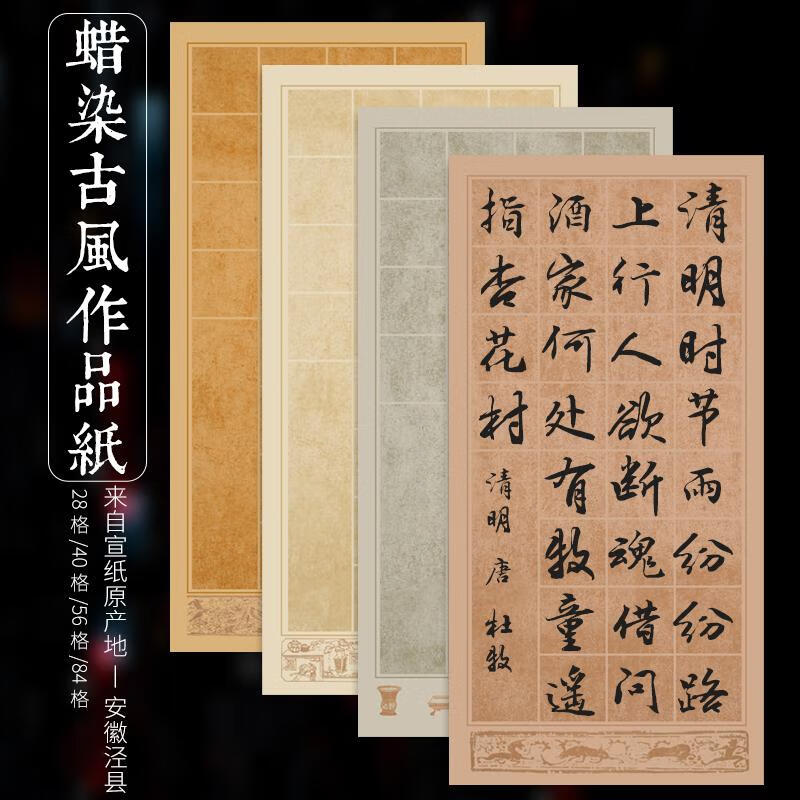 蜡染古風作品紙
来自宣纸原产地—安徽泾县
28格/40格/56格/84格
清明时节雨纷纷路
上行人欲断魂借问
酒家何处有牧童遥
指杏花村
清明 唐 杜牧